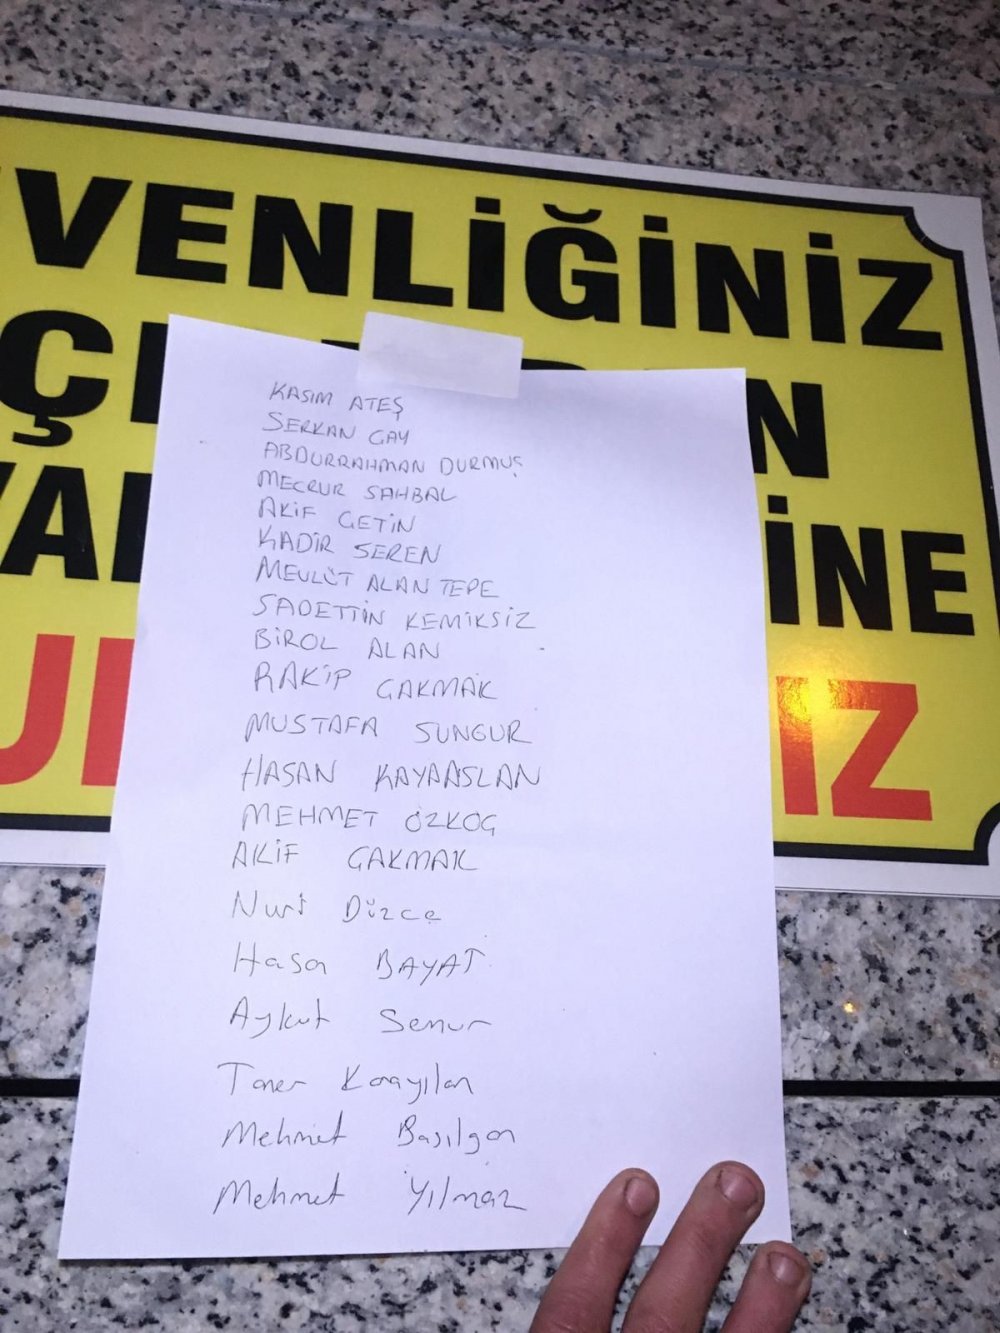 VENLİĞİNİZ
KASIM ATEŞ
SERKAN GAY
ABDURRAHMAN DURMUŞ
MECRUR SAHBAL
AKİF GETİN
KADİR SEREN
MEVLÜT ALANTEPE
SADETTİN KEMİKSİZ
BİROL ALAN
RAKİP GAKMAK
MUSTAFA SUNGUR
HASAN KAYAASLAN
MEHMET ÖZKOG
AKİF GAKMAK
Nuri Düzce
Hasan BAYAT
Aykut Semur
Taner Karayılan
Mehmet Başılgan
Mehmet Yılmaz